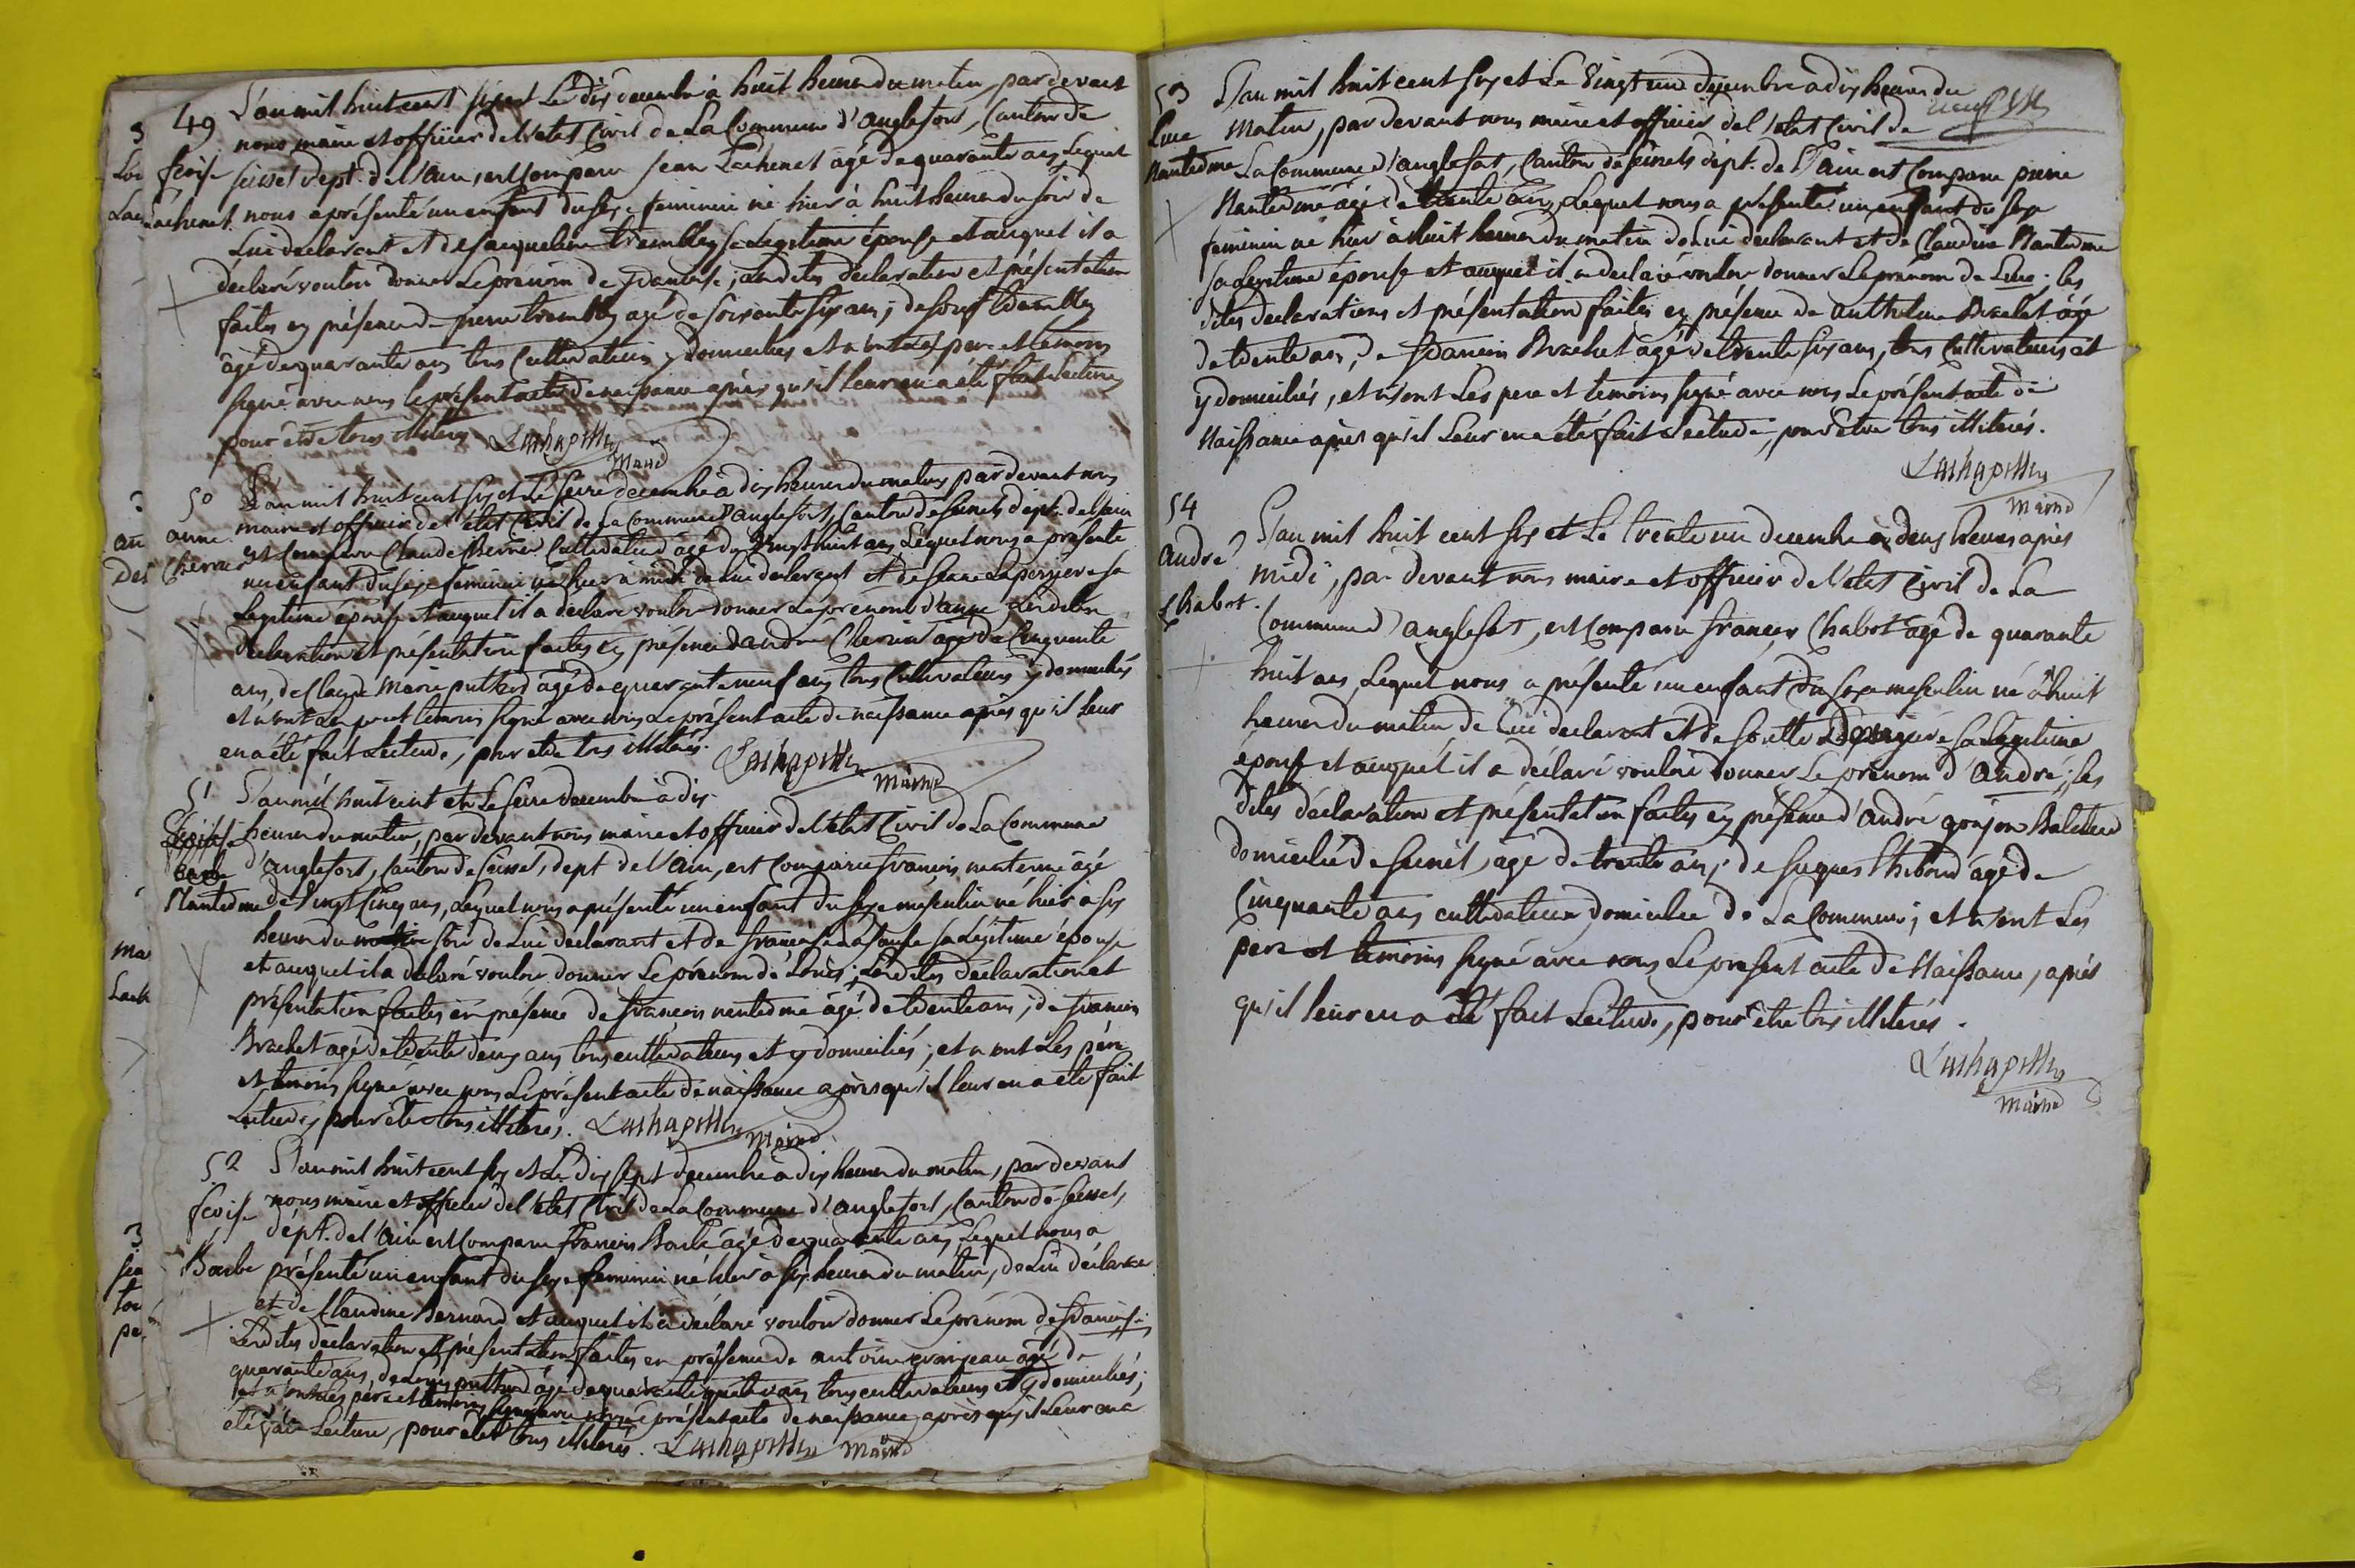 49
françoise
Lachenet
L'an mil huit cent six et Le dix decembre à huit heures du matin, par devant
nous maire et officier de l'etat Civil de La Commune d'anglefort, Canton de
seissel dept. de l'ain, est Comparu jean Lachenet âgé de quarante ans Lequel
nous a présenté un enfant du sexe feminin né hier à huit heures du soir de
Lui declarant et de jacqueline trembley sa Legitime épouse et auquel il a
déclaré vouloir donner Le prénom de françoise; Lesdites déclaration et présentation
faites en présence de pierre trembley agé de soixante six ans; de josef trembley
âgé de quarante ans tous Cultivateurs y domiciliés et n'ont Les pere et temoins
signé avec nous le présent acte de naissance après qu'il leur en a été fait Lecture
pour être tous illiterés Lachapelle
Maire
50
anne
Chervier
L'an mil huit cent six et Le seize decembre à dix heures du matin par devant nous
maire et officier de l'état Civil de La Commune d'anglefort, Canton de seissel dept. de l'ain
est Comparu Claude Chervier Cultivateur âgé de vingt huit ans Lequel nous a présenté
un enfant du sexe feminin né hier à midi de lui declarant et de sa
Legitime épouse et auquel il a declaré vouloir donner Le prenom d'anne Lesdites
declaration et présentation faites en présence d'andré Chervier âgé de Cinquante
ans, de Claude Marie puthod âgé de quarante neuf ans tous Cultivateurs y domiciliés
et n'ont Les pere et temoins signé avec nous Le présent acte de naissance après qu'il leur
en a été fait Lecture, pour etre tous illiterés. Lachapelle
Maire
51
Nanterme
L'an mil huit cent et Le seize decembre à dix
heures du matin, par devant nous maire et officier de l'etat Civil de La Commune
d'anglefort, Canton de seissel, dept de l'ain, est Comparu françois nanterme âgé
de vingt Cinq ans, Lequel nous a présenté un enfant du sexe masculin né hier à six
heures du soir de Lui declarant et de françoise sa Légitime épouse
et auquel il a déclaré vouloir donner Le prénom de Louis; Lesdites déclaration et
présentation faites en présence de françois nanterme âgé de trente ans; de françois
Brachet agé de trente deux ans tous cultivateurs et y domiciliés; et n'ont Les père
et temoins signé avec nous Le présent acte de naissance après qu'il leur en a été fait
Lecture, pour être tous illiterés. Lachapelle
Maire
52
fcoise
Barbe
L'an mil huit cent six et Le dix sept decembre à dix heures du matin, par devant
nous maire et officier de l'etat Civil de La Commune d'anglefort, Canton de seissel,
dept. de l'ain est Comparu françois Barbe âgé de quarante ans Lequel nous a
présenté un enfant du sexe feminin né hier à six heures du matin, de Lui déclarant
et de Claudine Bernard et auquel il a déclaré vouloir donner Le prénom de françoise
Lesdites déclaration et présentation faites en présence de antoine granjean âgé de
quarante ans, de puthod âgé de quarante quatre ans tous cultivateurs et y domiciliés;
et n'ont Les père et temoins signé avec nous Le présent acte de naissance après qu'il Leur en a
été fait Lecture, pour être tous illiterés. Lachapelle Maire
53
Luce
Nanterme
L'an mil huit cent six et Le vingt un decembre à dix heures du
Matin, par devant nous maire et officier de l'etat Civil de
La Commune d'anglefort, Canton de seissel dept. de L'ain est Comparu pierre
Nanterme âgé de trente ans, Lequel nous a présenté un enfant du sexe
feminin né hier à huit heures du matin de Lui declarant et de Claudine Nanterme
sa Legitime épouse et auquel il a declaré vouloir donner Le prénom de Luce; les
dites declarations et présentation faites en présence de anthelme Brachet âgé
de trente ans, de françois Brachet âgé de trente six ans, tous Cultivateurs et
y domiciliés, et n'ont Les pere et temoins signé avec nous Le présent acte de
Naissance après qu'il Leur en a été fait Lecture, pour être tous illiterés.
Lachapelle
Maire
54
andré
Chabot.
L'an mil huit cent six et Le trente un decembre à deux heures après
midi, par devant nous maire et officier de l'etat Civil de La
Commune d'anglefort, est Comparu françois Chabot âgé de quarante
huit ans, Lequel nous a présenté un enfant du sexe masculin né à huit
heures du matin de Lui declarant et de sa Légitime
épouse et auquel il a déclaré vouloir donner Le prénom d'andré; Les
dites déclaration et présentation faites en présence d'andré goujon Batelier
domicilié de seissel, âgé de trente ans; de jaques thiboud âgé de
Cinquante ans cultivateur domicilié de La Commune; et n'ont Les
pere et temoins signé avec nous Le present acte de Naissance, après
qu'il leur en a été fait Lecture, pour être tous illiterés.
Lachapelle
Maire